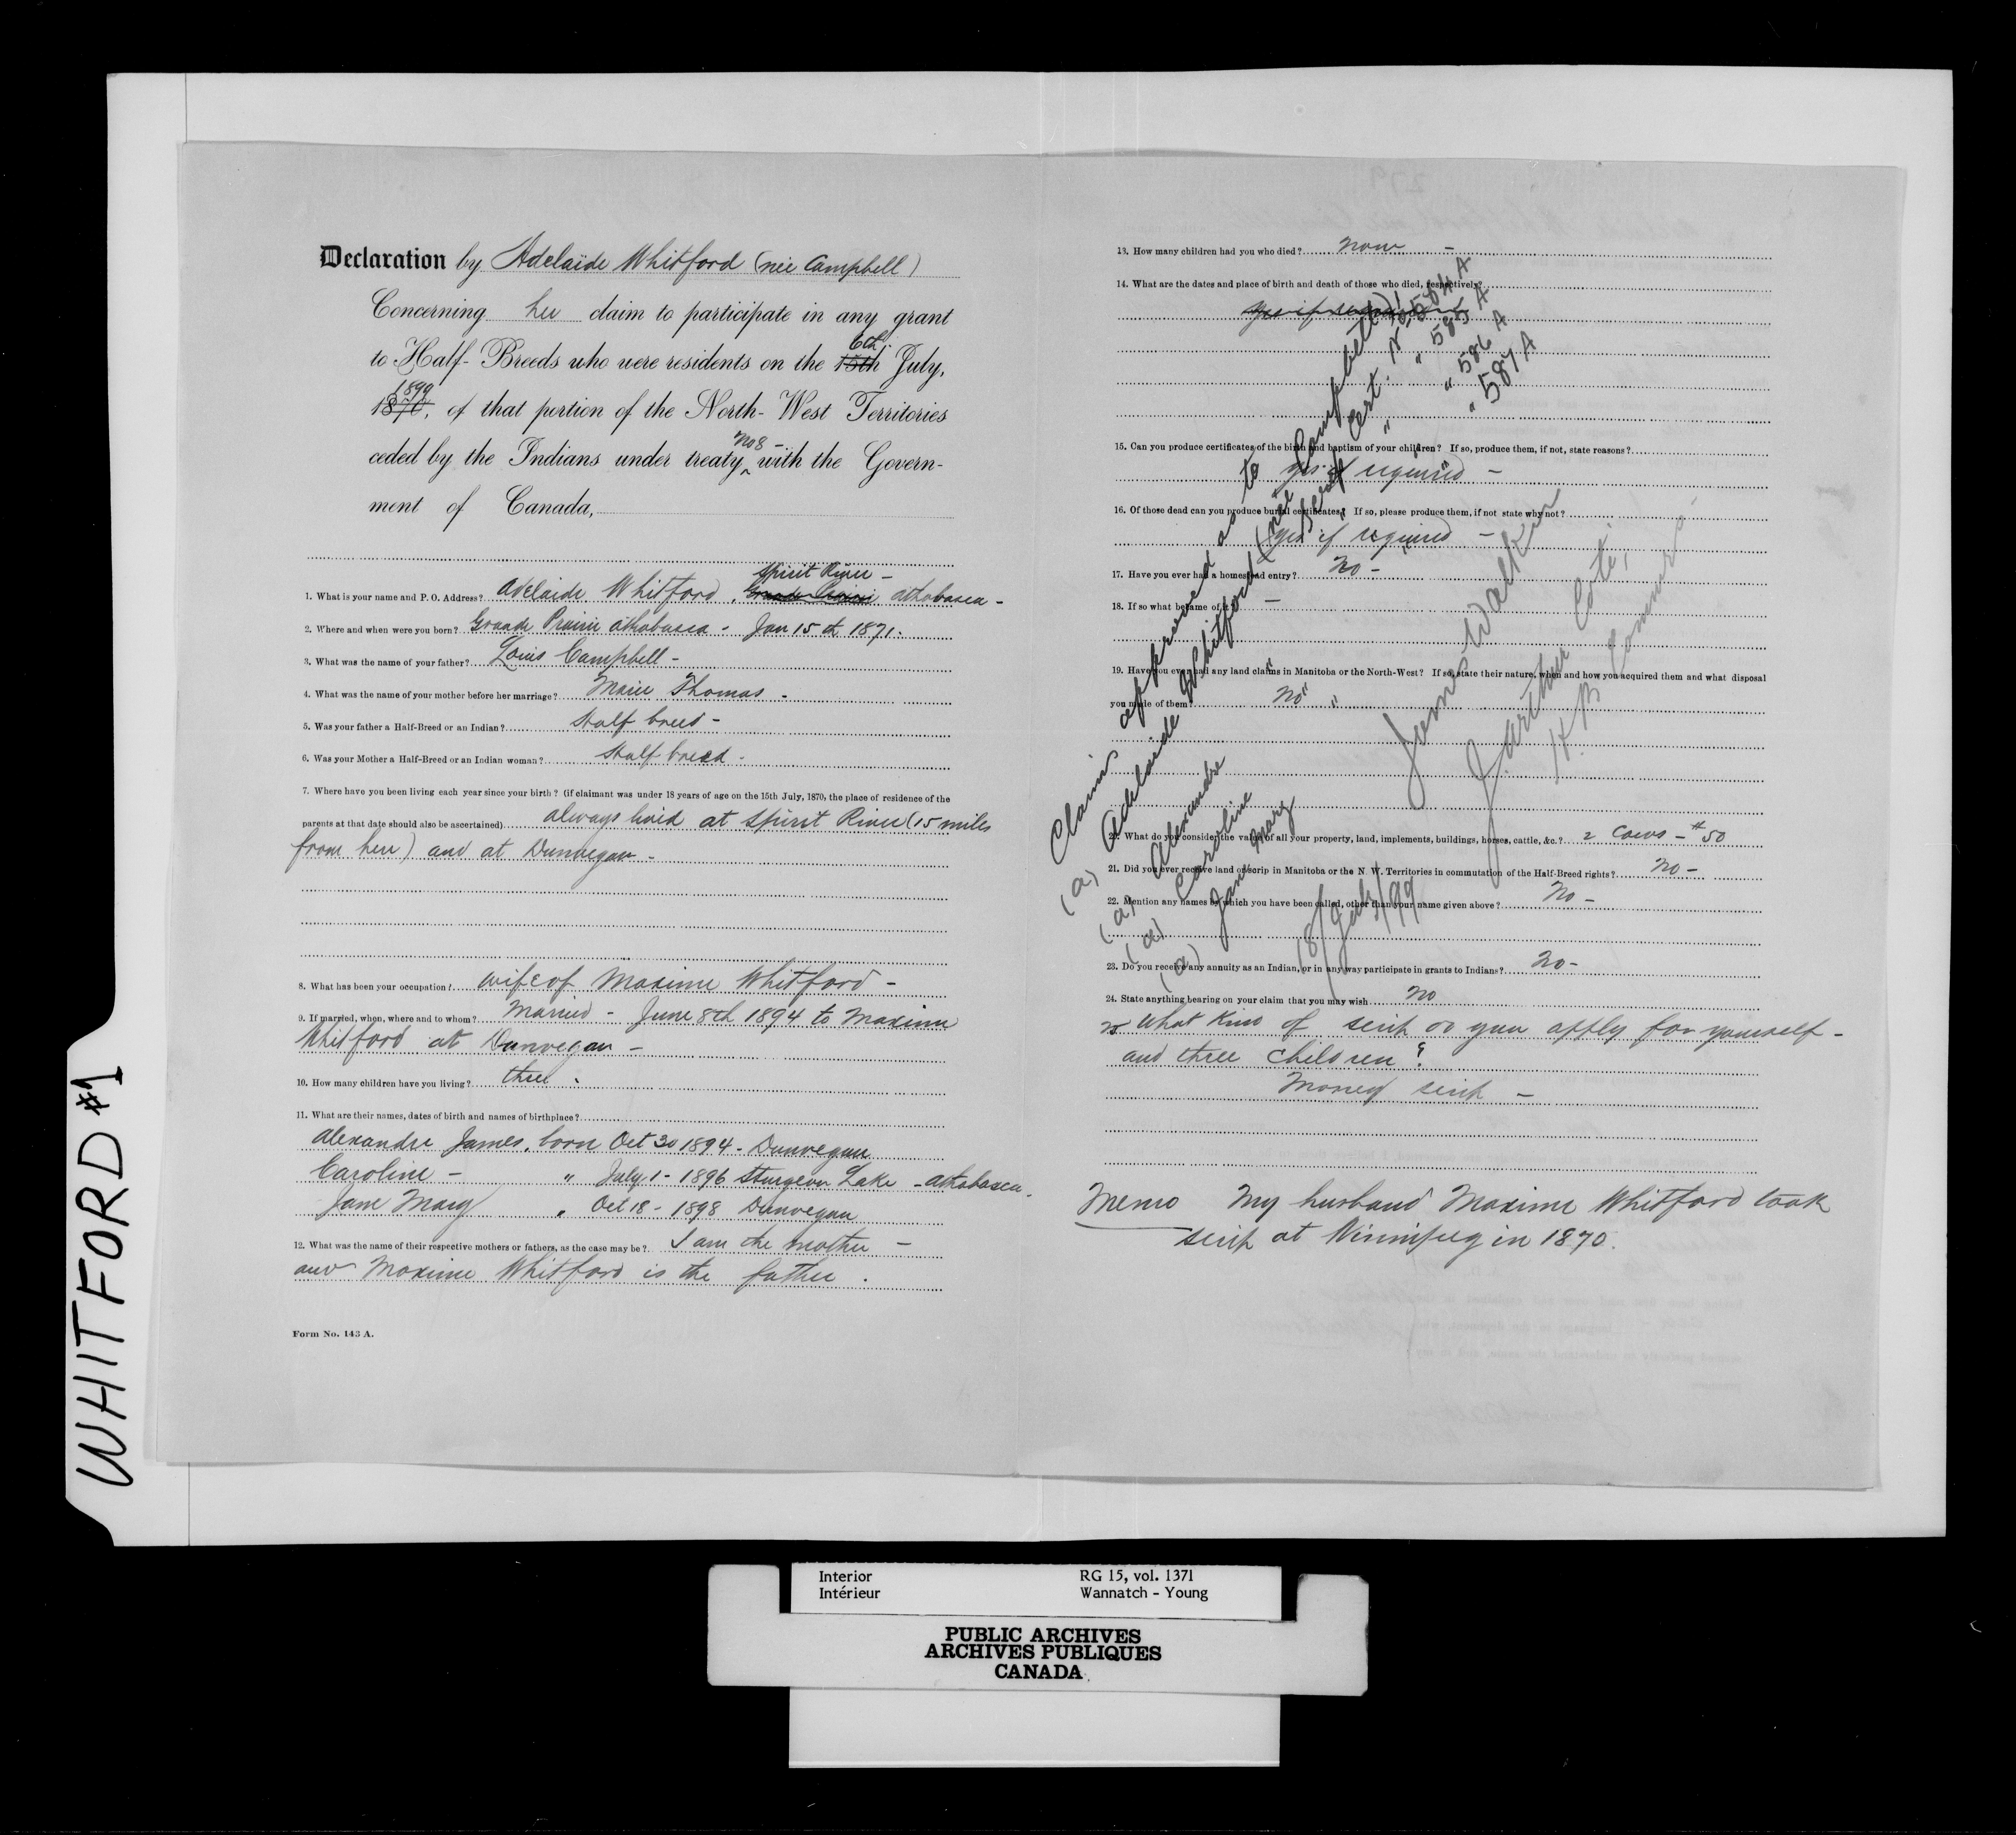 WHITFORD #1
Declaration by Adelaide Whitford (neé Campbell)
Concerning her claim to participate in any grant
to Half-Breeds who were residents on the 15th 6th July,
1870, 1899 of that portion of the North-West Territories
ceded by the Indians under treaty No 8 - with the Govern-
ment of Canada,
1. What is your name and P. O. Address? Adelaide Whitford, Grande Prairie Spirit River - Athabasca -
2. Where and when were you born? Grande Prairie Athabasca - Jan 15th 1871.
3. What was the name of your father? Louis Campbell -
4. What was the name of your mother before her marriage? Marie Thomas -
5. Was your father a Half-Breed or an Indian? Half breed -
6. Was your Mother a Half-Breed or an Indian woman? Half breed -
7. Where have you been living each year since your birth? (if claimant was under 18 years of age on the 15th July, 1870, the place of residence of the
parents at that date should also be ascertained) always lived at Spirit River (15 miles
from here) and at Dunvegan -
8. What has been your occupation? wife of Maxime Whitford -
9. If married, when, where and to whom? Married - June 8th 1894 to Maxime
Whitford at Dunvegan -
10. How many children have you living? three -
11. What are their names, dates of birth and names of birthplace?
Alexandre James, born Oct 30 1894 - Dunvegan
Caroline - " July 1 - 1896 Sturgeon Lake - Athabasca -
Jane Mary " Oct 18 - 1898 Dunvegan
12. What was the name of their respective mothers or fathers, as the case may be? I am the mother -
and Maxime Whitford is the father.
Form No. 143 A.
13. How many children had you who died? None -
14. What are the dates and place of birth and death of those who died, respectively?
yes if required
15. Can you produce certificates of the birth and baptism of your children? If so, produce them, if not, state reasons?
yes if required -
16. Of those dead can you produce burial certificates? If so, please produce them, if not state why not?
yes if required -
17. Have you ever had a homestead entry? No -
18. If so what became of it? -
19. Have you ever had any land claims in Manitoba or the North-West? If so, state their nature, when and how you acquired them and what disposal
you made of them? No
20. What do you consider the value of all your property, land, implements, buildings, horses, cattle, &c.? 2 Cows - $50
21. Did you ever receive land or scrip in Manitoba or the N. W. Territories in commutation of the Half-Breed rights? No -
22. Mention any names by which you have been called, other than your name given above? No -
23. Do you receive any annuity as an Indian, or in any way participate in grants to Indians? No -
24. State anything bearing on your claim that you may wish No
25 What kind of scrip do you apply for yourself -
and three children?
Money scrip -
Memo My husband Maxime Whitford took
scrip at Winnipeg in 1870.
Claims approved as to
(a) Adelaide Whitford (neé Campbell) herself Cert. No 584 A
(a) Alexandre " " " " 585 A
(a) Caroline " " " 586 A
(a) Jane Mary " 587 A
James Walker
J. Arthur Coté,
H.B. Commrs.
18/July/99
Interior
Intérieur
RG 15, vol. 1371
Wannatch - Young
PUBLIC ARCHIVES
ARCHIVES PUBLIQUES
CANADA